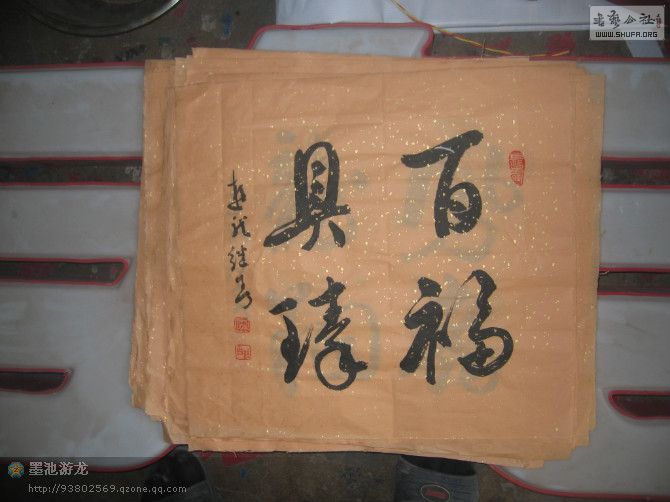 百福
具臻
书艺公社
WWW.SHUFA.ORG
墨池游龙
http://93802569.qzone.qq.com